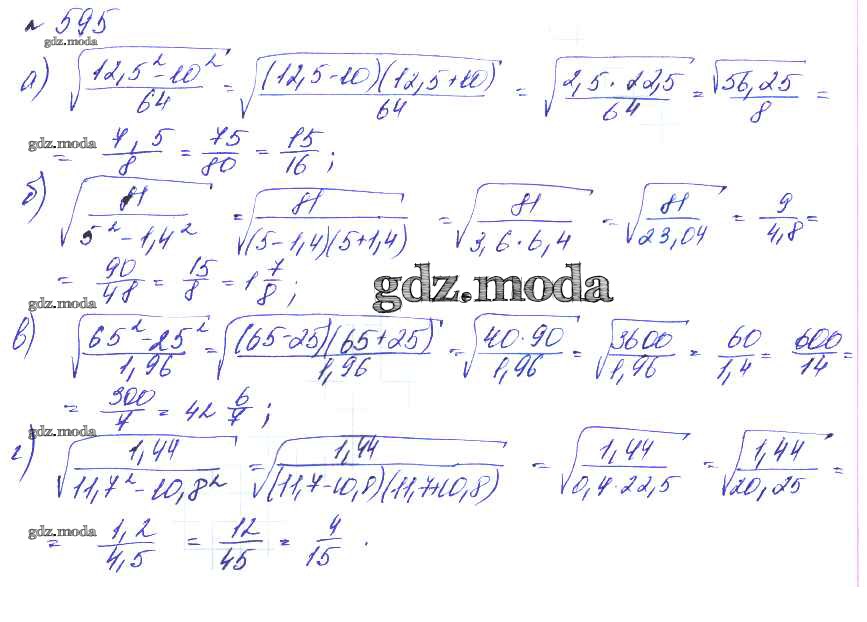 № 595
gdz.moda
а) √((12,5² - 10²)/64) = √(((12,5-10)(12,5+10))/64) = √((2,5 · 22,5)/64) = √(56,25)/8 =
gdz.moda
= 7,5/8 = 75/80 = 15/16 ;
б) √(81/(5² - 1,4²)) = √(81/((5-1,4)(5+1,4))) = √(81/(3,6 · 6,4)) = √(81/23,04) = 9/4,8 =
= 90/48 = 15/8 = 1 7/8 ;
gdz.moda
gdz.moda
в) √((65² - 25²)/1,96) = √(((65-25)(65+25))/1,96) = √((40·90)/1,96) = √(3600/1,96) = 60/1,4 = 600/14 =
= 300/7 = 42 6/7 ;
gdz.moda
г) √(1,44/(11,7² - 10,8²)) = √(1,44/((11,7-10,8)(11,7+10,8))) = √(1,44/(0,4·22,5)) = √(1,44/20,25) =
gdz.moda
= 1,2/4,5 = 12/45 = 4/15 .